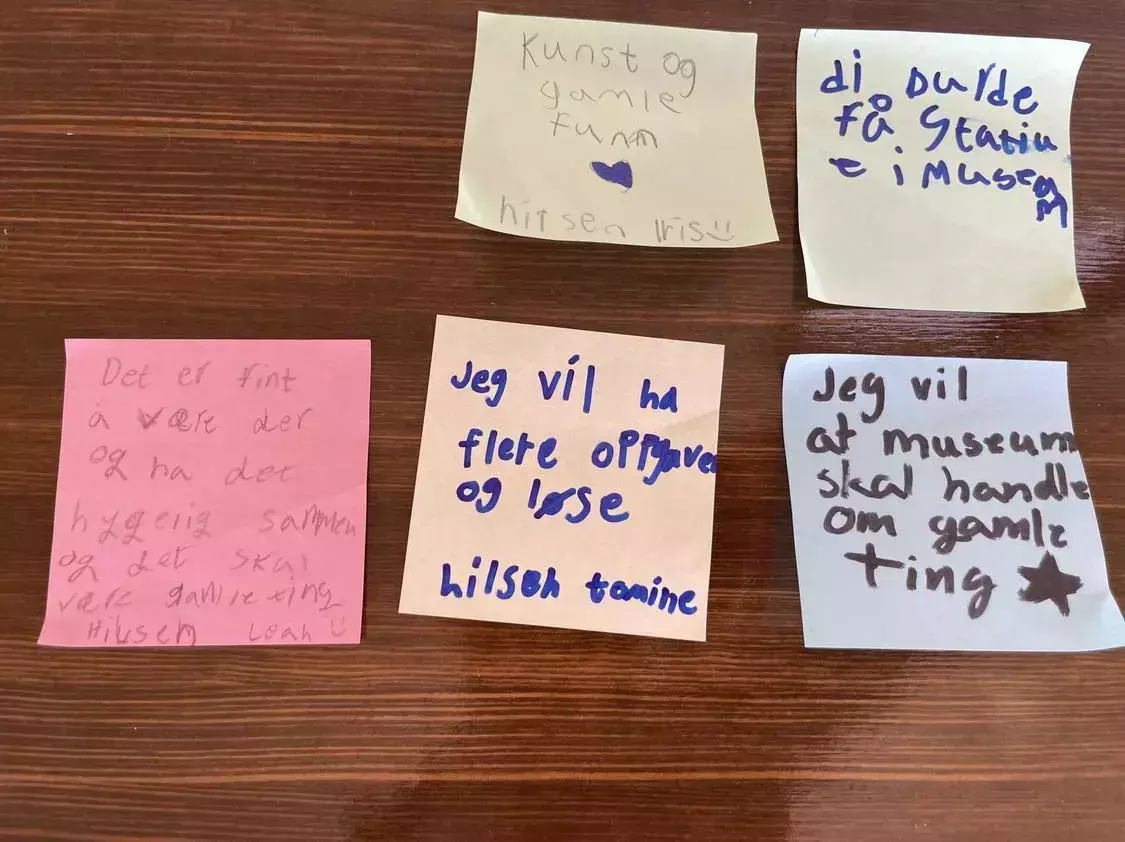 Kunst og
gamle
funn
hilsen Iris
di burde
få Statiu
e i Museu
m
Det er fint
å være der
og ha det
hygerig sammen
og det skal
være gamle ting
Hilsen Leah
Jeg vil ha
flere oppgaver
og løse
hilsen tomine
Jeg vil
at museum
skal handle
om gamle
ting